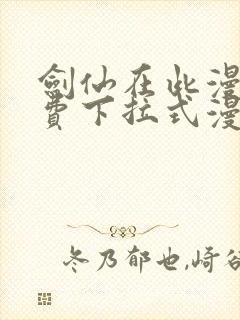 劍仙在此漫
費下拉式漫
冬乃郁也,崎谷